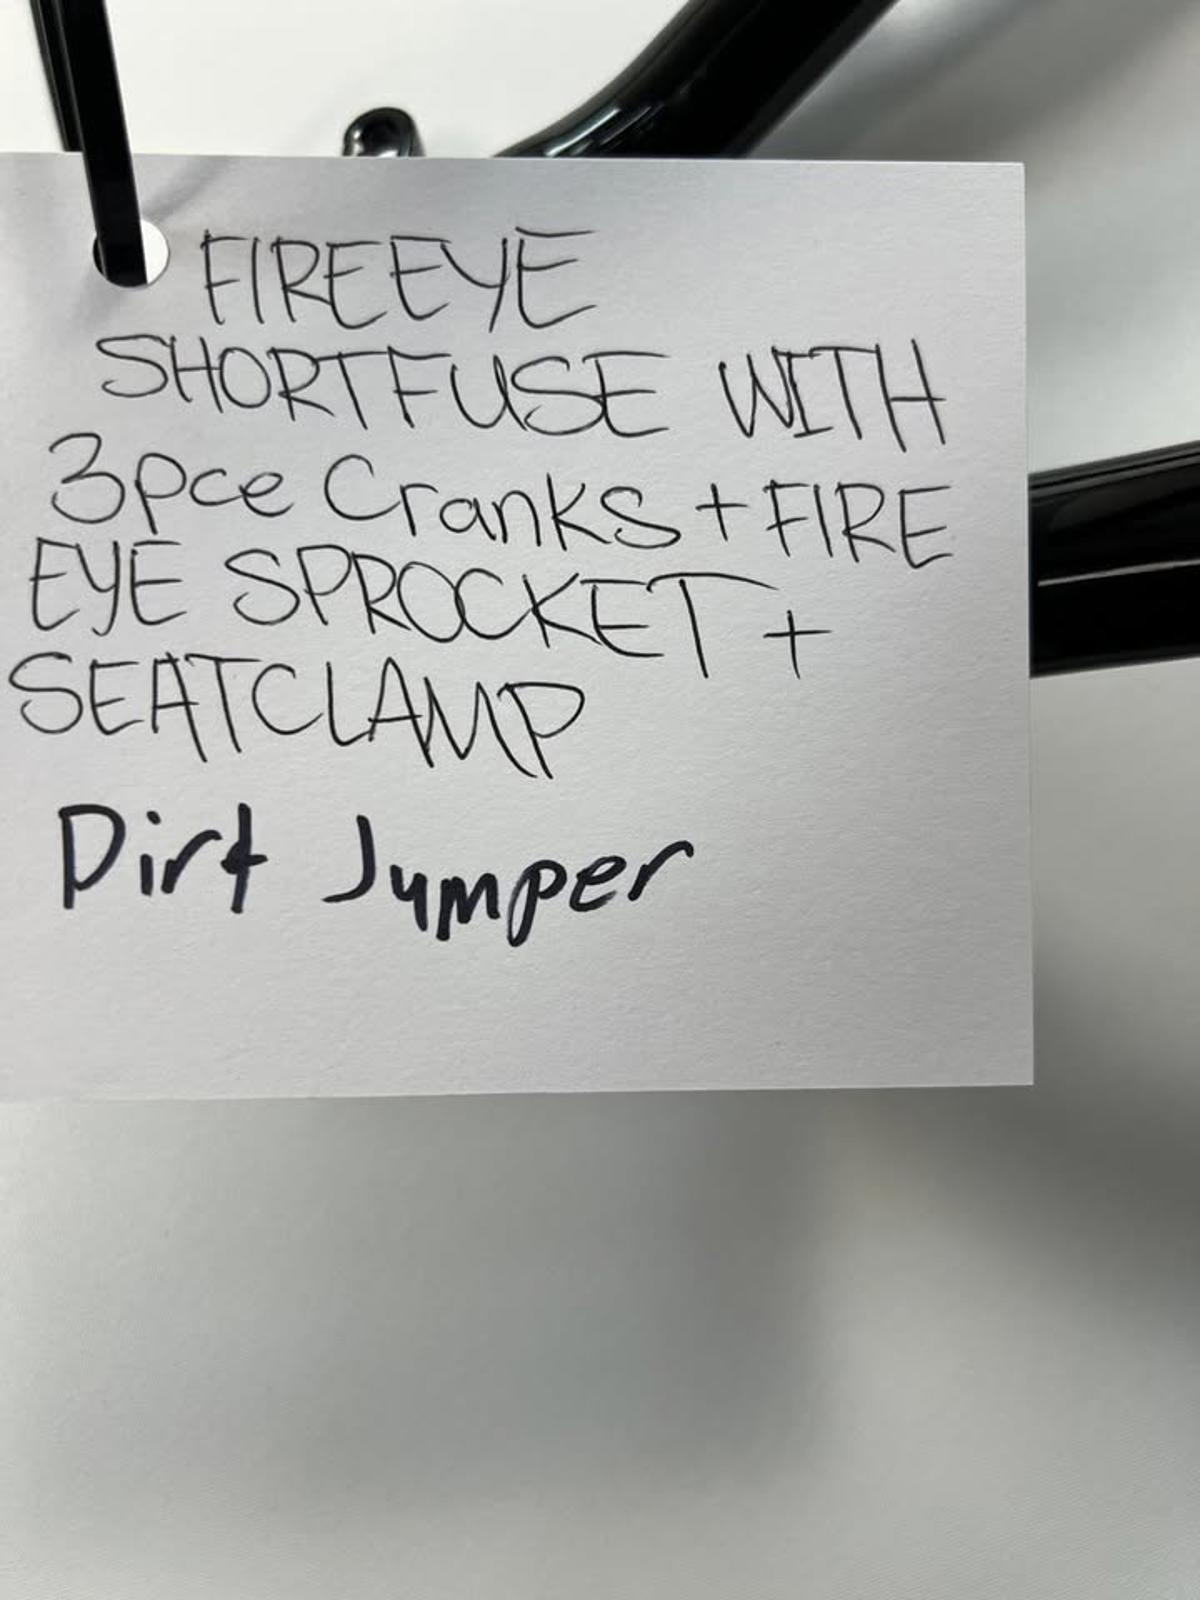 FIREEYE
SHORTFUSE WITH
3pce Cranks + FIRE
EYE SPROCKET +
SEATCLAMP
Dirt Jumper